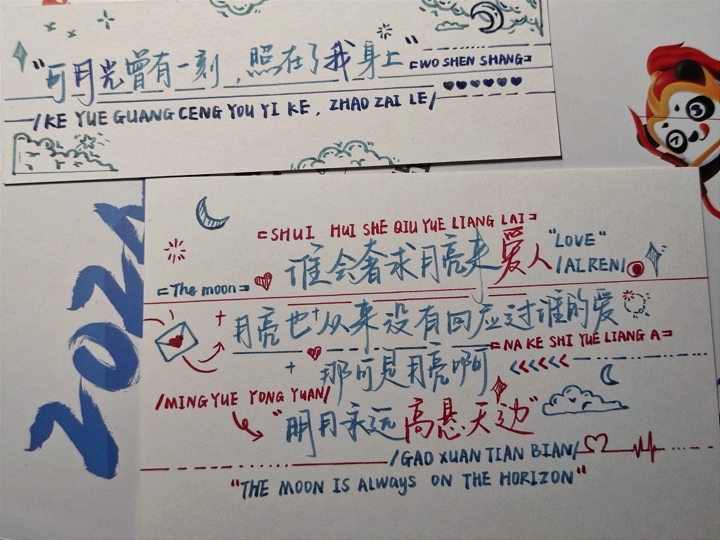 "可月光曾有一刻，照在了我身上"
[WO SHEN SHANG]
/KE YUE GUANG CENG YOU YI KE, ZHAO ZAI LE/
2024
[SHUI HUI SHE QIU YUE LIANG LAI]
谁会奢求月亮来爱人 "LOVE"
/AI REN/
[The moon]
月亮也从来没有回应过谁的爱
[NA KE SHI YUE LIANG A]
那可是月亮啊
/MING YUE YONG YUAN/
"明月永远高悬天边"
/GAO XUAN TIAN BIAN/
"THE MOON IS ALWAYS ON THE HORIZON"